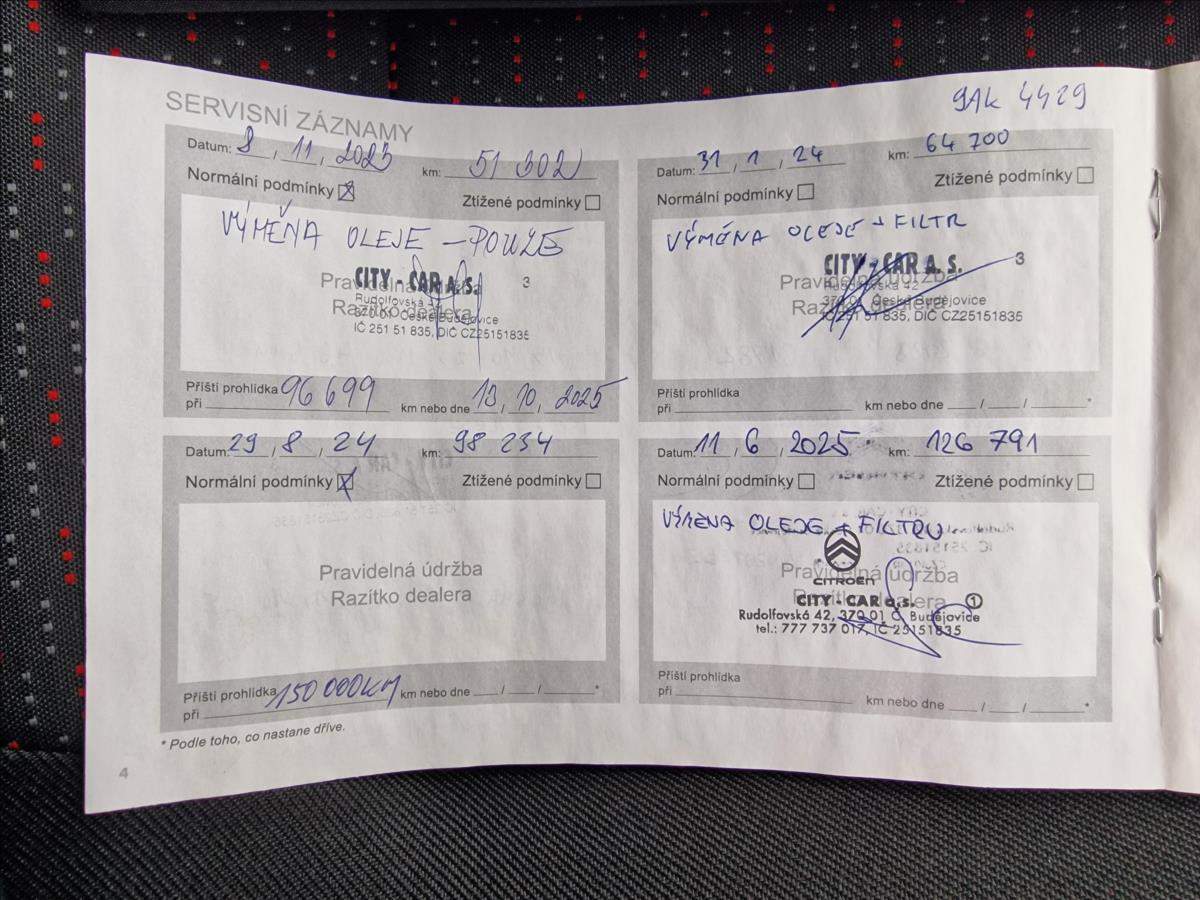 9AK 4429
SERVISNÍ ZÁZNAMY
Datum: 8, 11, 2023 km: 51 302
Normální podmínky Ztížené podmínky
VÝMĚNA OLEJE – POUZE
Pravidelná údržba
Razítko dealera
CITY - CAR a.s. 3
Rudolfovská 42
370 01 České Budějovice
IČ 251 51 835, DIČ CZ25151835
Příští prohlídka 96 699
při km nebo dne 13, 10, 2025
Datum: 31, 1, 24 km: 64 700
Normální podmínky Ztížené podmínky
VÝMĚNA OLEJE + FILTR
Pravidelná údržba
Razítko dealera
CITY - CAR A. S. 3
Rudolfovská 42
370 01 České Budějovice
IČ 251 51 835, DIČ CZ25151835
Příští prohlídka
při km nebo dne / / *
Datum: 29, 8, 24 km: 98 234
Normální podmínky Ztížené podmínky
Pravidelná údržba
Razítko dealera
Příští prohlídka 150 000KM
při km nebo dne / / *
Datum: 11, 6, 2025 km: 126 791
Normální podmínky Ztížené podmínky
VÝMĚNA OLEJE + FILTRU
Pravidelná údržba
Razítko dealera
CITROËN
CITY - CAR a.s. 1
Rudolfovská 42, 370 01 Č. Budějovice
tel.: 777 737 017, IČ 25151835
Příští prohlídka
při km nebo dne / / *
* Podle toho, co nastane dříve.
4